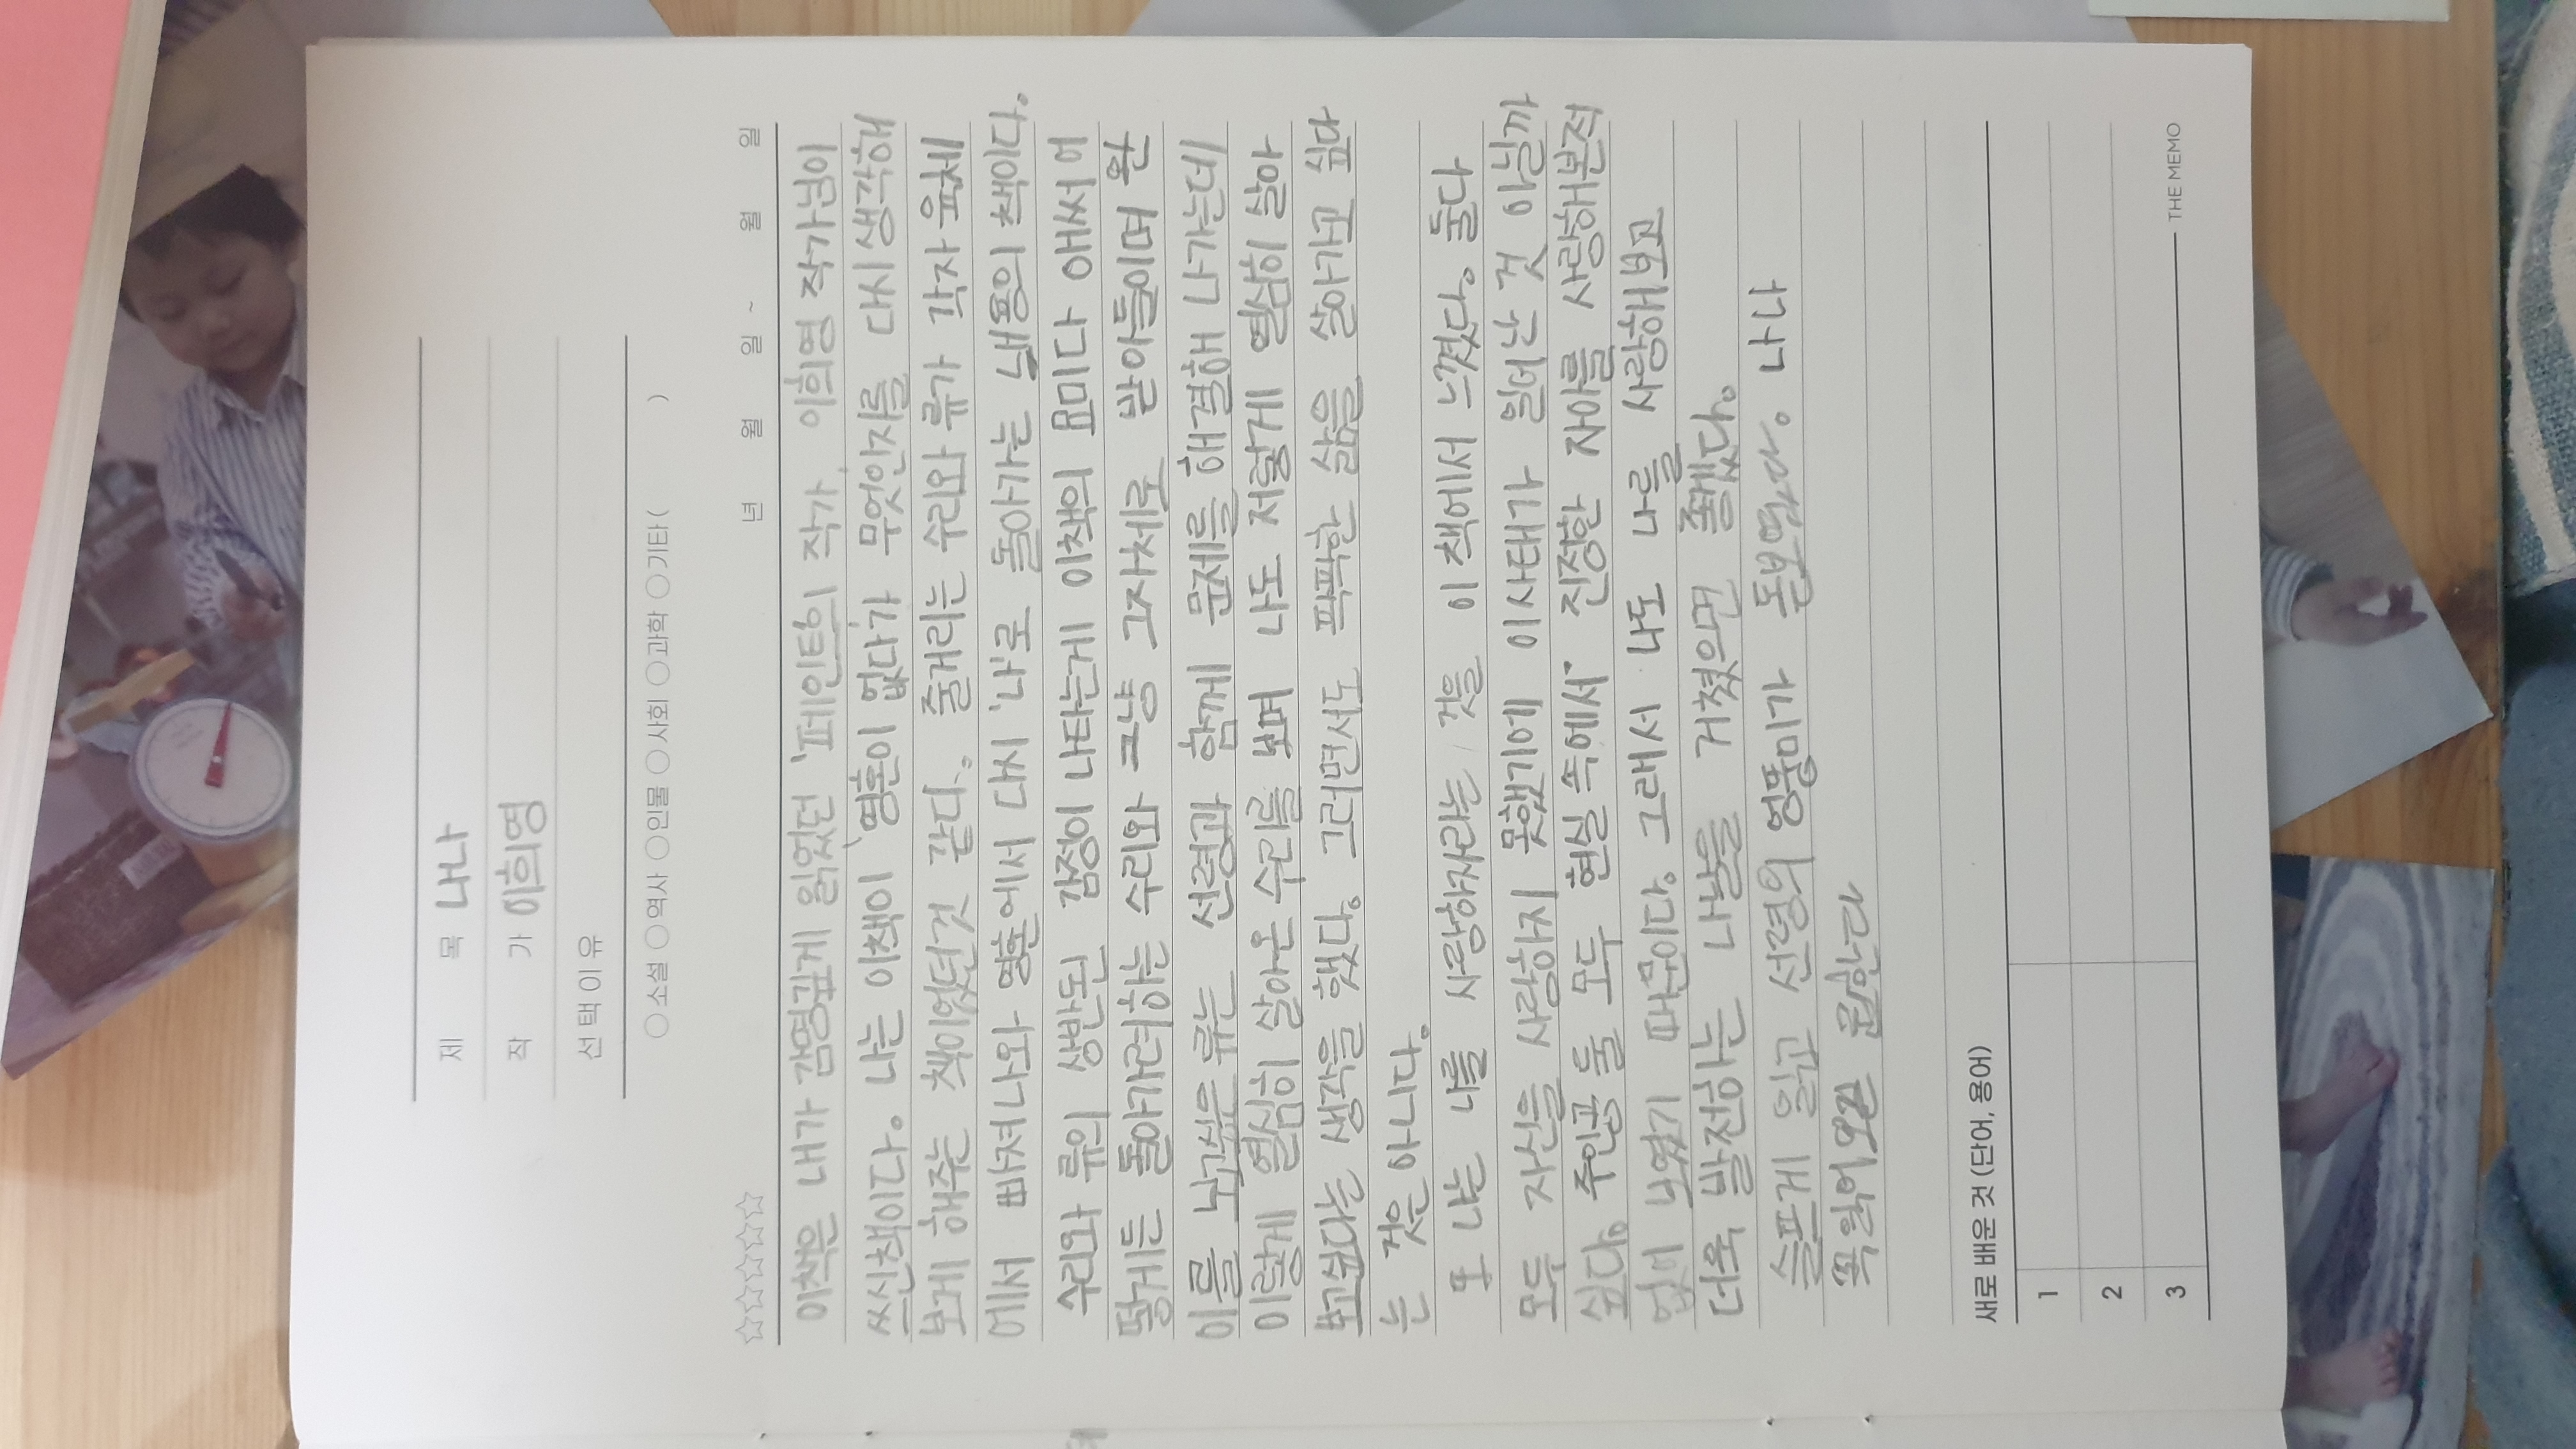 제 목 나나
작 가 이희영
선택이유
소설 역사 인물 사회 과학 기타 ( )
년 월 일 ~ 월 일
이책은 내가 감명깊게 읽었던 '페인트'의 작가, 이희영 작가님이
쓰신책이다. 나는 이책이 '영혼이 없다'가 무엇인지를 다시 생각해
보게 해주는 책이었던것 같다. 줄거리는 수리와 류가 각자 육체
에서 빠져나와 영혼에서 다시 '나'로 돌아가는 내용의 책이다.
수리와 류의 상반된 감정이 나타는게 이책의 묘미다 애써 어
떻게든 돌아가려하는 수리와 그냥 그자체로 받아들이며 완
이를 보고싶은 류는 선령과 함께 문제를 해결해 나가는데
이렇게 열심히 살아온 수리를 보며 나도 저렇게 열심히 살아
보고싶다는 생각을 했다. 그러면서도 팍팍한 삶을 살아가고 싶다
는 것은 아니다.
또 나는 나를 사랑하자라는 것을 이 책에서 느꼈다. 둘다
모두 자신을 사랑하지 못했기에 이사태가 일어난 것 아닐까
싶다. 주인공 둘 모두 현실 속에서 진정한 자아를 사랑해본적
없어 보였기 때문이다. 그래서 나도 나를 사랑해보고
더욱 발전하는 나날을 거쳤으면 좋겠다.
슬프게 읽고 선령의 엉뚱미가 돋보였다. 나나
꼭읽어보길 권한다
새로 배운 것 (단어, 용어)
1
2
3
THE MEMO